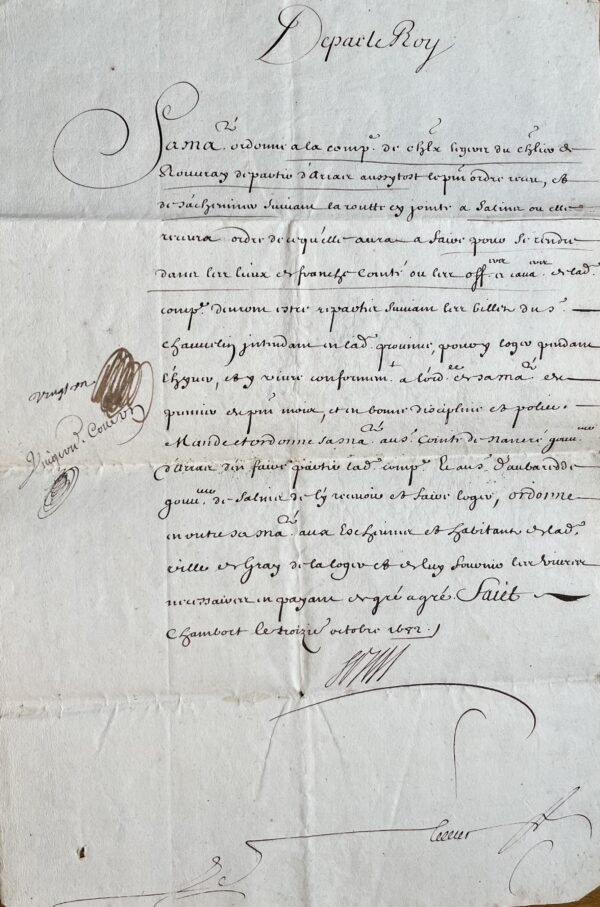 De par le Roy
Sa Maté ordonne a la compe de chlx legers du chlier de
Rouvray de partir d'Arras aussytost le pnt ordre receu, et
de s'acheminer suivant la routte cy jointe a Salins ou elle
recevra ordre de ce qu'elle aura a faire pour se rendre
dans les lieux de franche Comté ou les offers et cavaers de lad.
compe devront estre repartis suivant les billets du sr
Chauvelin intendant en lad. province, pour y loger pendant
l'hyver, et y vivre conformemt a l'ordce de Sa Maté du
premier du pnt mois, et en bonne discipline et police.
Mande et ordonne Sa Maté au sr Comte de Nancré gouvr
d'Arras d'en faire partir lad. compe Et au sr d'aubarede
gouvr de Salins de l'y recevoir et faire loger, ordonne
en outre Sa Maté aux Eschevins et habitans de lad.
ville de Gray de la loger et de luy fournir les vivres
necessaires en payant de gré a gré. Faict
Chambort le troize octobre 1682